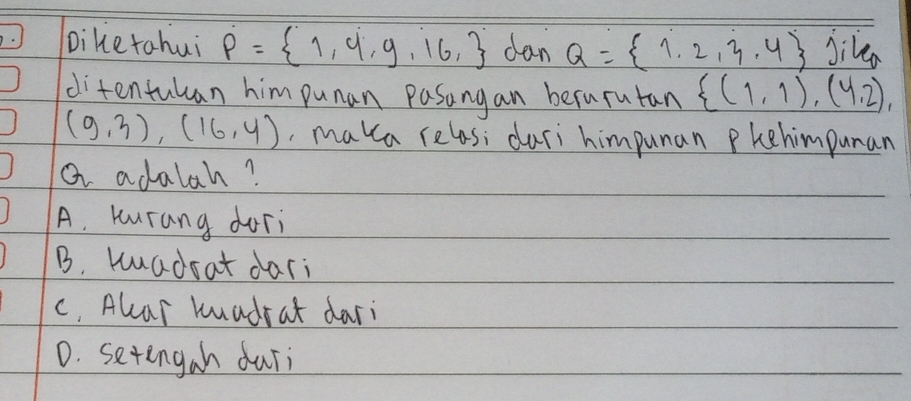 Diketahui P = { 1, 4, 9, 16, } dan Q = { 1. 2, 3. 4 } Jika
ditentukan himpunan Pasangan berurutan {(1, 1), (4,2),
(9,3), (16,4), maka relasi dari himpunan P kehimpunan
Q adalah ?
A. kurang dari
B. kuadrat dari
C, Akar kuadrat dari
D. Setengah dari